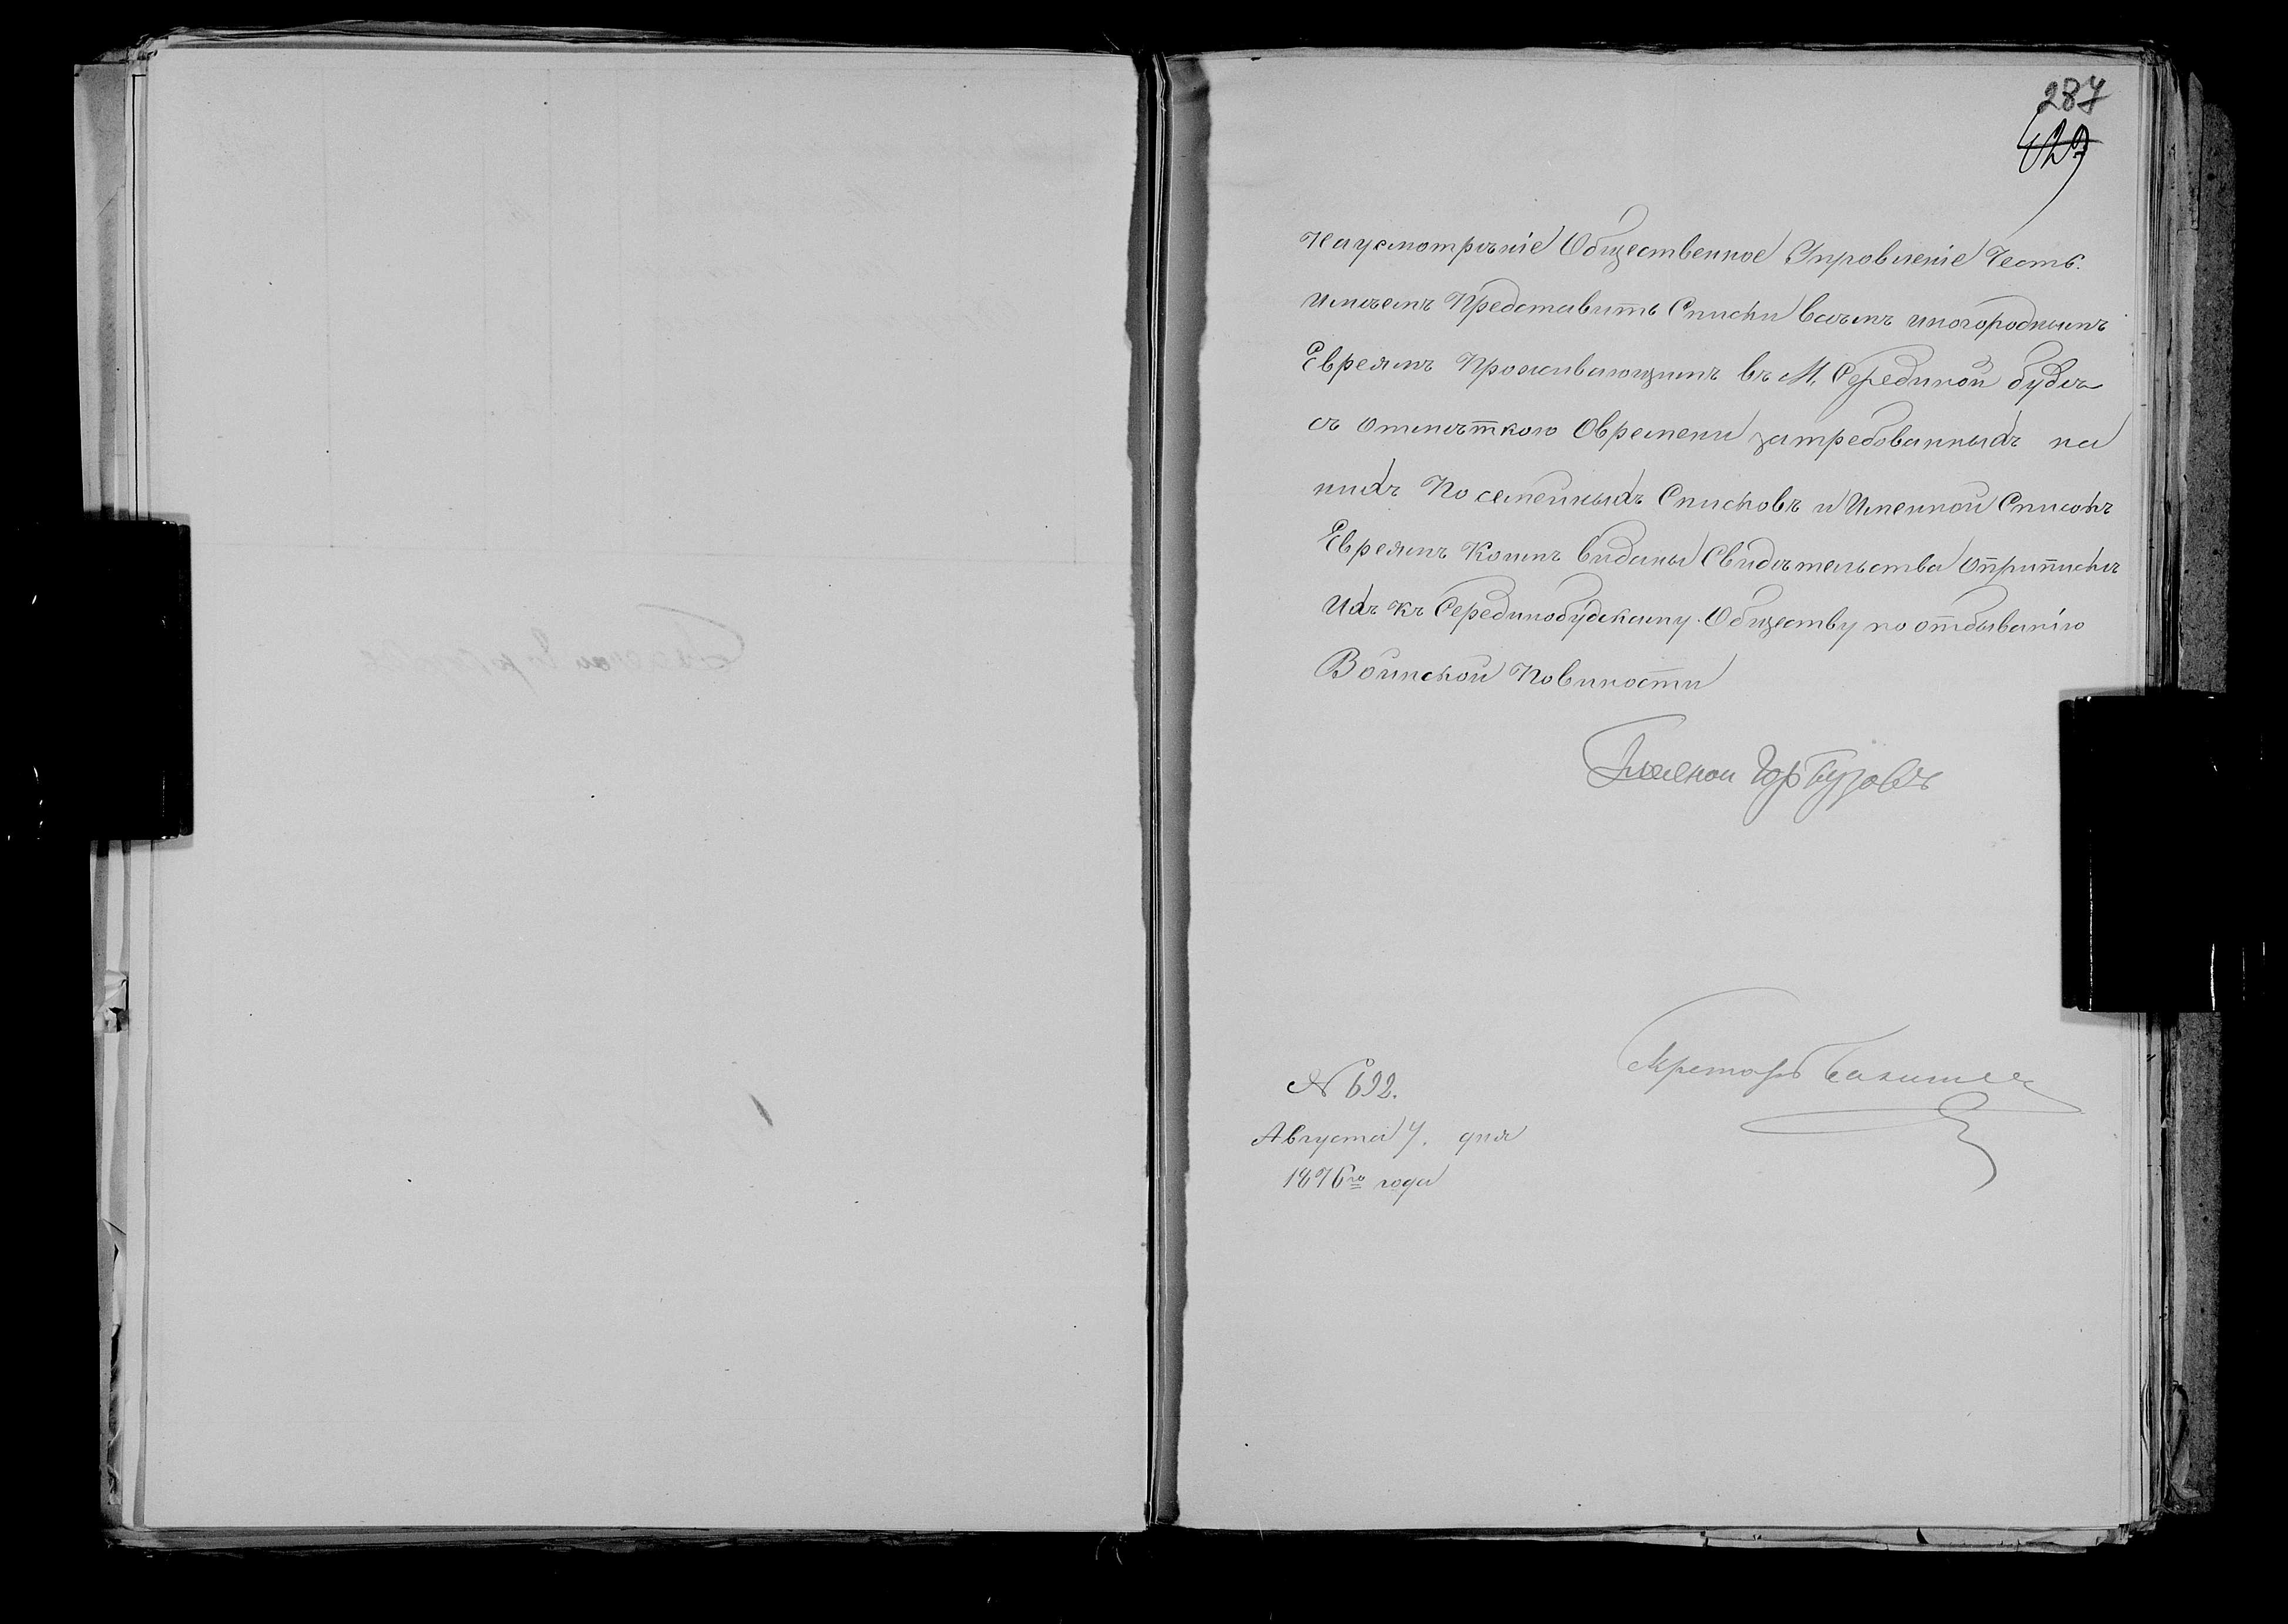 287
Наусмотрѣніе Общественное Управленіе Честь.
имѣетъ Представить Списки всѣмъ иногороднымъ
Евреямъ Проживающимъ въ М. Серединой будѣ
съ отмѣткою Овремени затребованныхъ на
нихъ По семейныхъ Списковъ и Именной Списокъ
Евреямъ Коимъ видены Свидѣтельства оприпискѣ
ихъ къ Серединобудскому Обществу по отбыванію
Воинской Повиности
Горбузовъ
№ 692.
Августа 7. дня
1876го года